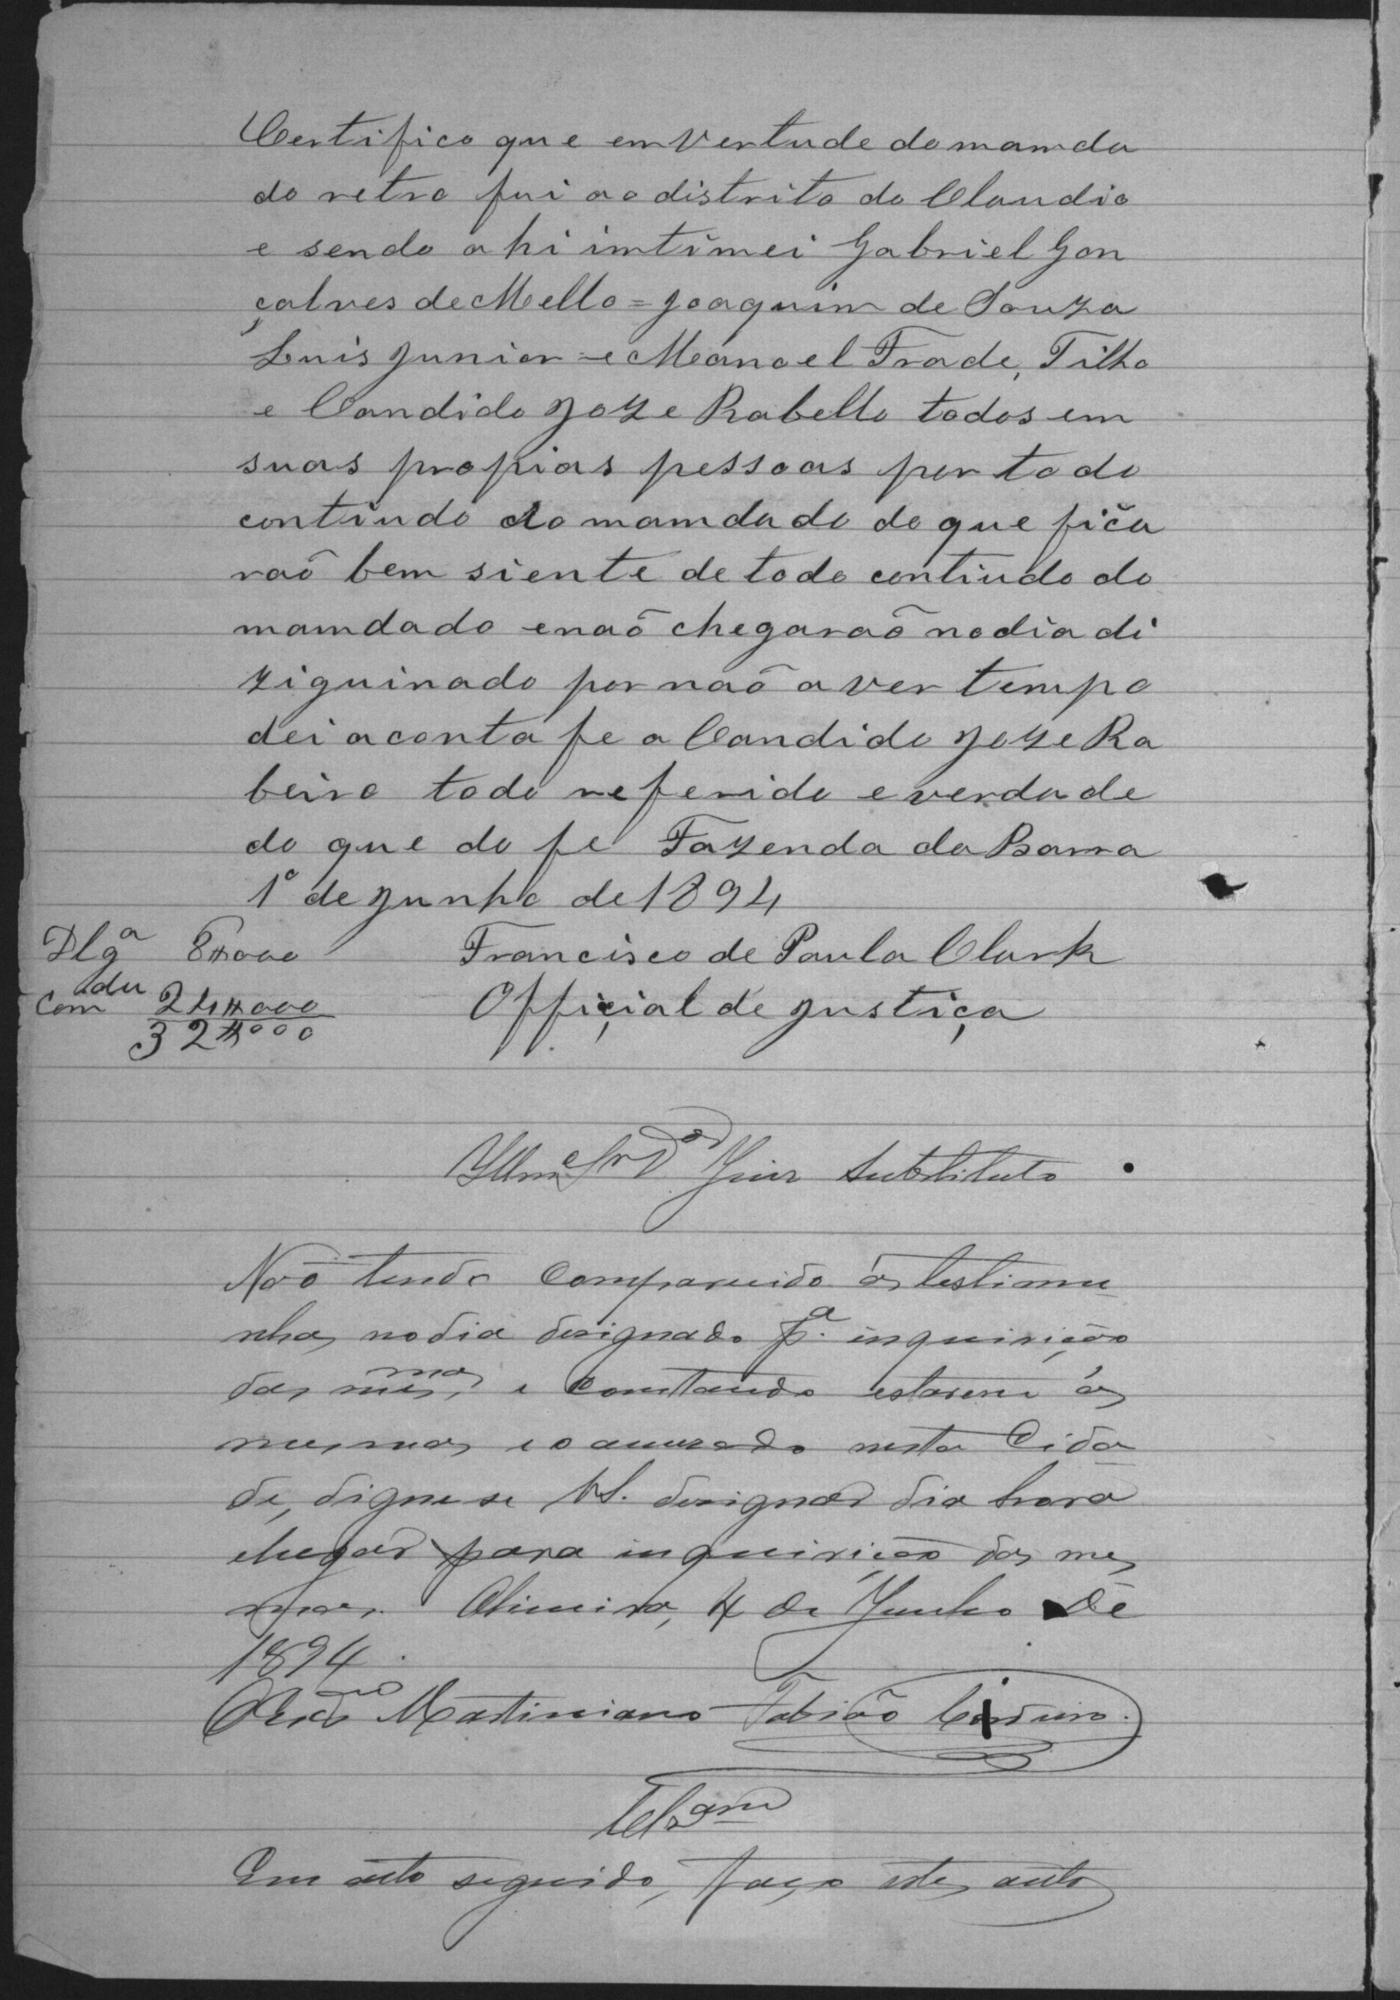 Certifico que em vertude do mamda
do retro fui ao distrito do Claudio
e sendo ahi imtimei Gabriel Gon
çalves de Mello = Joaquim de Souza
Luis Junior = e Manoel Frade, Filho
e Candido Joze Rabello todos em
suas propias pessoas por todo
contiudo do mamdado do que fica
raõ bem siente de todo contiudo do
mamdado e naõ chegaraõ no dia di
ziguinado por naõ aver tempo
dei a conta fe a Candido Joze Ra
beiro todo referido e verdade
do que do fe Fazenda da Barra
1º de Junho de 1894
Dlgª 8#000 Francisco de Paula Clark
Comdu 24#000 Official de Justiça
32#000
Illmo Sr Dor Juiz Substituto
Naõ tendo comparecido ás testimu
nhas no dia designado pª. inquirição
das mesmas, e constando estarem ás
mesmas e o acuzado nesta Cida
de, digne-se VS. designar dia hora
elugar para inquirição das mes
mas. Oliveira, 4 de Junho de
1894.
Martiniano Fabião Cordeiro.
Em acto seguido, faço estes autos